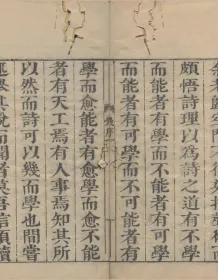 頗悟詩理以為詩之道有不學
而能者有學而不能者有可學
而能者有可學而不可能者有
學而愈能者有愈學而愈不能
者有天工焉有人事焉知其所
以然而詩可以幾而學也間嘗
而聞者莫吾信